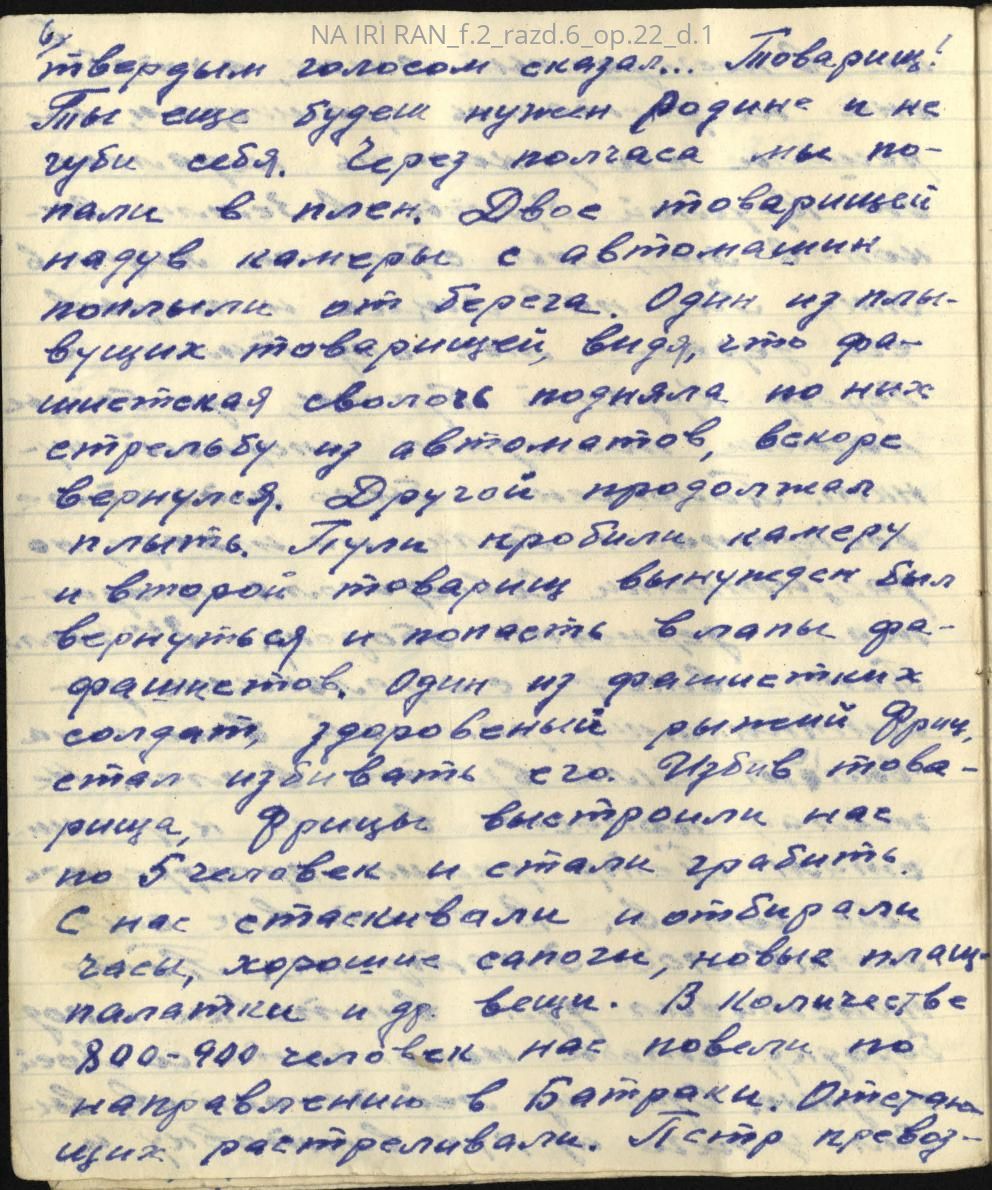 NA IRI RAN_f.2_razd.6_op.22_d.1
6)
твердым голосом сказал... Товарищ!
Ты еще будеш нужен Родине и не
губи себя. Через полчаса мы по-
пали в плен. Двое товарищей
надув камеры с автомашин
поплыли от берега. Один из плы-
вущих товарищей, видя, что фа-
шистская сволочь подняла по них
стрельбу из автоматов, вскоре
вернулся. Другой продолжал
плыть. Пули пробили камеру
и второй товарищ вынужден был
вернуться и попасть в лапы фа-
фашистов. Один из фашистких
солдат, здоровеный рыжий Фриц,
стал избивать его. Избив това-
рища, Фрицы выстроили нас
по 5 человек и стали грабить.
С нас стаскивали и отбирали
часы, хорошие сапоги, новые плащ-
палатки и др. вещи. В количестве
800-900 человек нас повели по
направлению в Батраки. Отстаю
щих растреливали. Петр превоз-